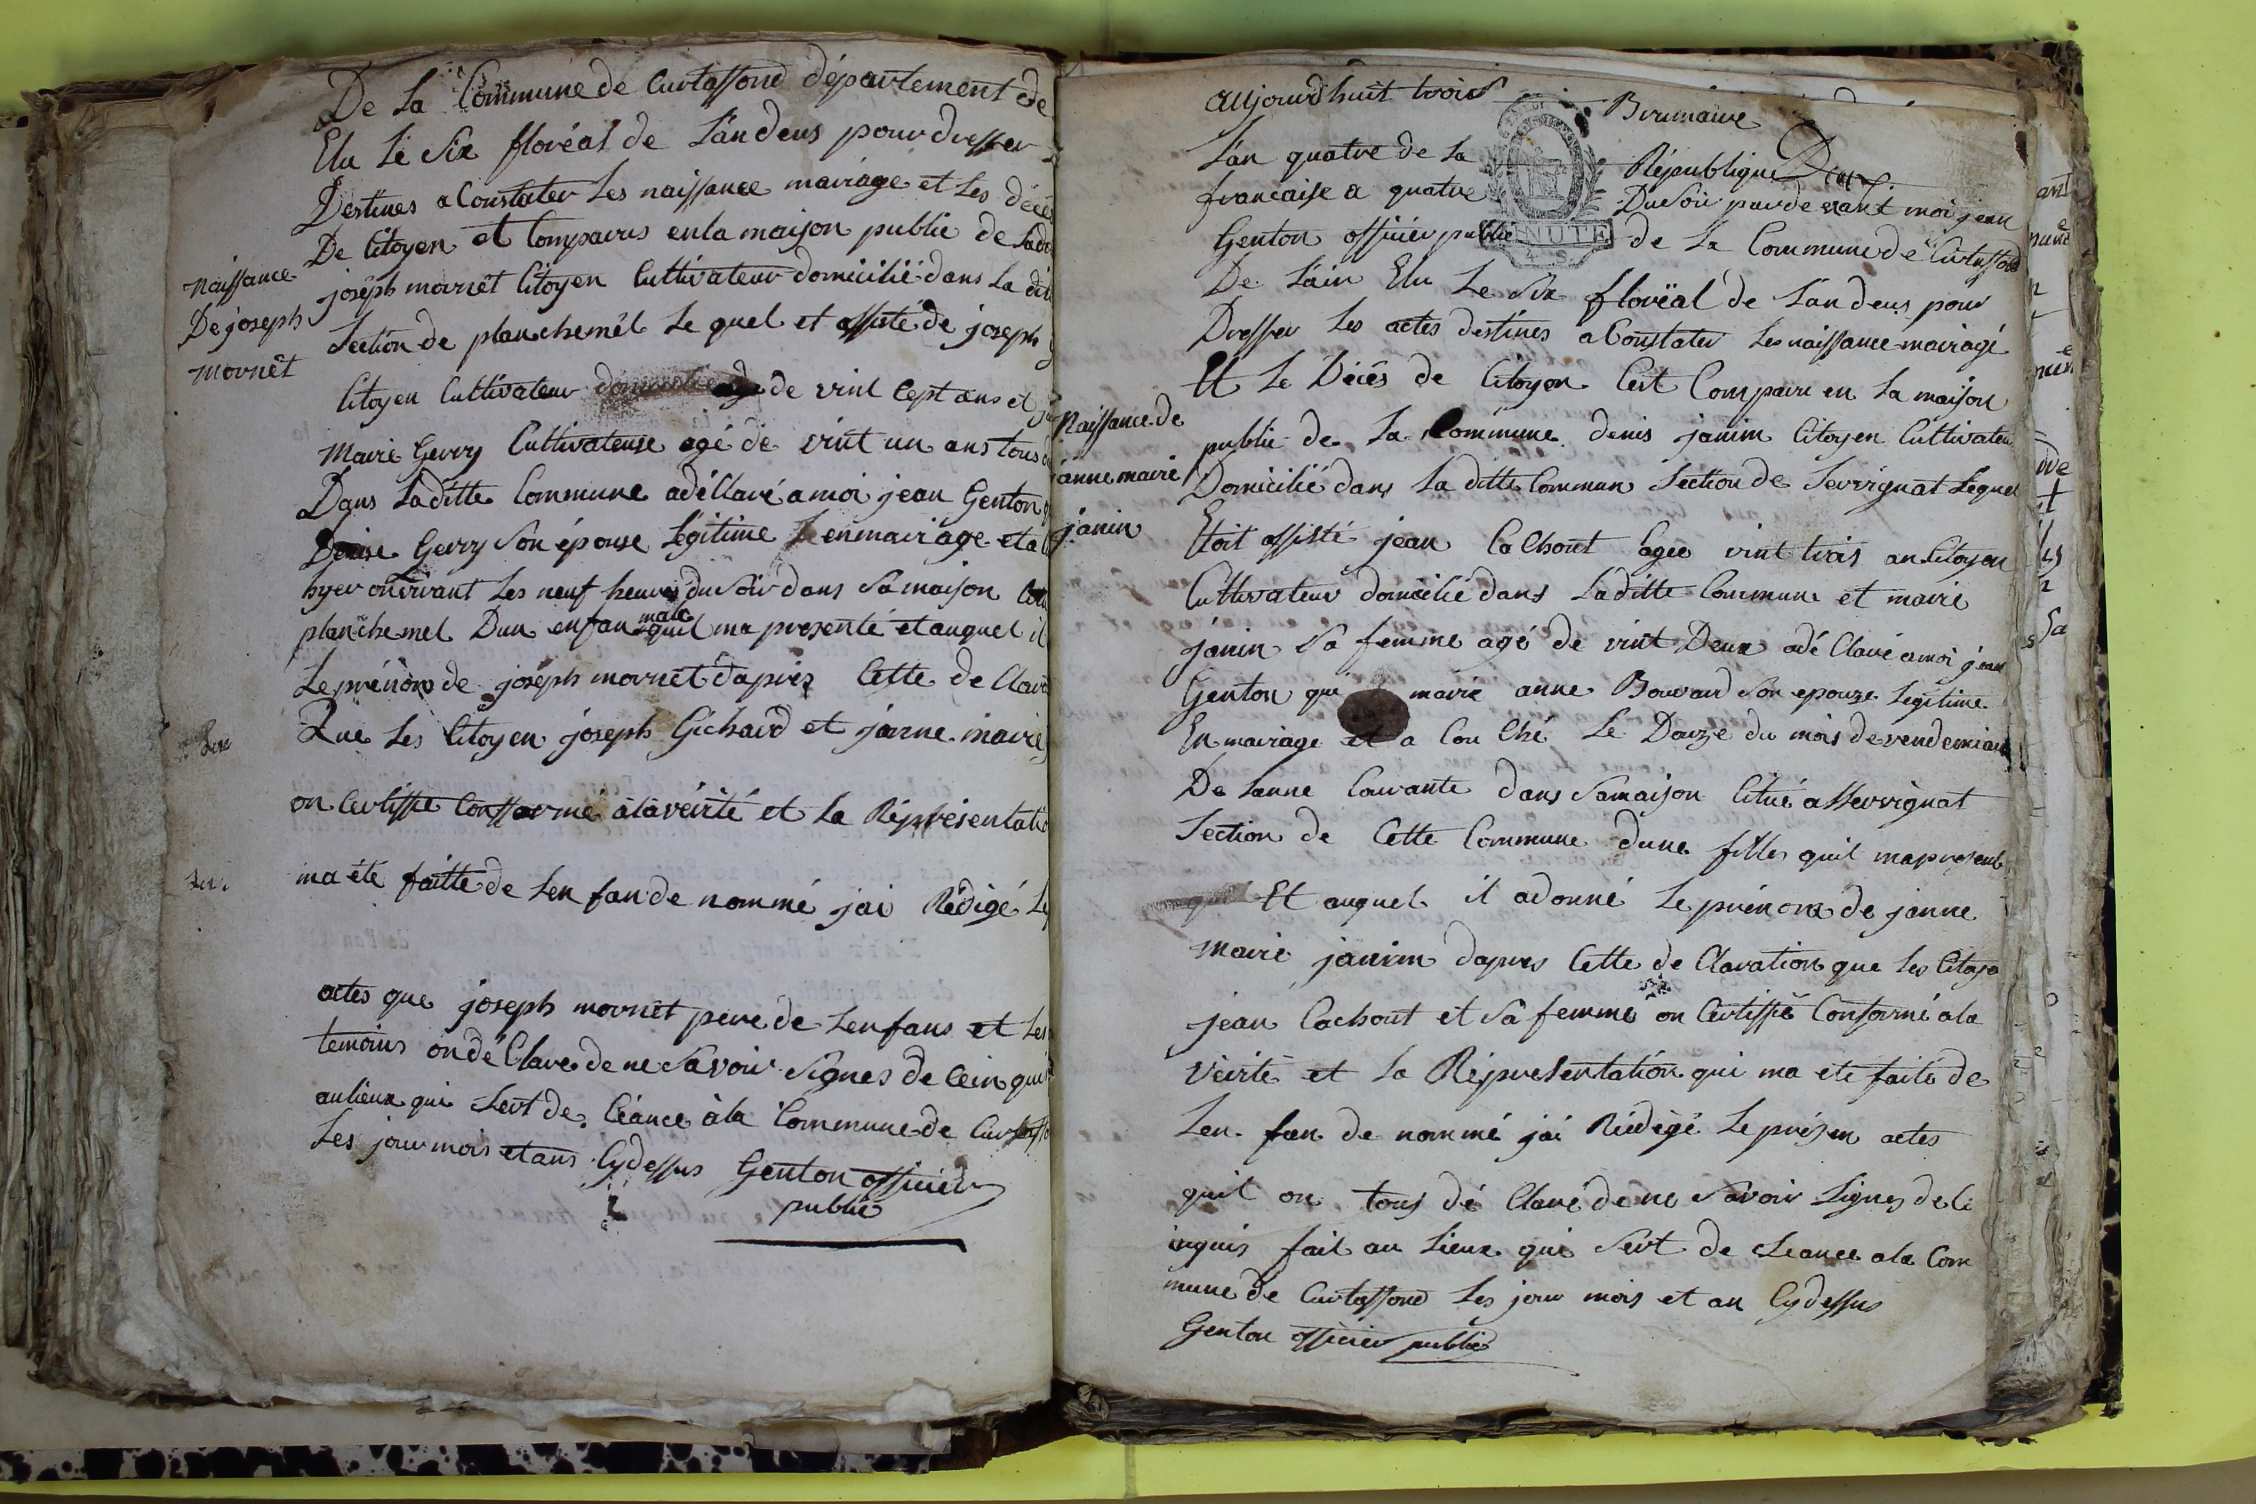 De La Commune de Curtaffond département de
Elu Le Six floréal de L'an deus pour dresser
Destines a Constater Les naissance mairiage et Les décé
De Citoyen et Comparus en la maison public de Lad
joseph mornêt Citoyen Cultivateur domicilié dans La dit
Section de planchemêl Le quel et assité de joseph
naissance
De joseph
mornêt
Citoyen Cultivateur de vint Cept ans et
Mairi Gerry Cultivateuse agé de vint un ans tous
Dans Laditte Commune a déClaré a moi jean Genton
Denise Gerry Son épouse Légitime en mairiage et a
hyer onvirant Les neuf heures du Soir dans Sa maison
planchemel Dun enfan male quil ma presenté et auquel il
Le prénom de joseph mornet d'apres Cette de Clara
Que Les Citoyen joseph Gichard et janne mairie
on Certiffie Conforme à la véirité et La Réprésentatio
ma été faitte de Len fan de nommé jai Rédigé Le
actes que joseph mornêt pere de Lenfans et Les
temoins on dé Clare de ne Savoir Signes de Cein qui
au lieux qui Sert de Céance à la Commune de Curtaffo
Les jour mois et ans Cy dessus Genton officier
public
aujourdhuit trois Brumaire
L'an quatre de la République
francaise a quatre Du Soir parde vant moi jean
Genton officier public de La Commune de Curtaffond
MINUTE
De L'ain Elu Le Six floréal de L'an deus pour
Dresser Les actes destines a Constater Les naissance mairiagé
Et Le Décês de Citoyen Cest Comparu en La maison
Naissance de
janne mairi
janin
public de La Commune denis janin Citoyen Cultivateur
Domicilié dans La ditte Commun Section de Servignat Lequel
Etoit assisté jean Cachout Cagee vint trois an Citoyen
Cultivateur domicilié dans Laditte Commune et mairi
janin Sa femme agé de vint Deux a dé Claré a moi jean
Genton que mairi anne Bouvard Son epouze Legitime
En mairiage et a Cou Ché Le Douze du mois de vendemiaire
De Lanne Courante dans Sa maison Citué a Servignat
Section de Cette Commune dune filles quil ma presenté
Et auquel il a donné Le prénom de janne
Mairi janin dapres Cette de Claration que Les Citoye
jean Cachout et Sa femme on Certiffié Conforme a la
Véirité et La Réprésentation qui ma ete faite de
Len fan de nommé jai Réédégé Le présen actes
quil on tous dé Claré de ne Savoir Signes de Ce
inquis fait au Lieux qui Sert de Ceance a la Com
mune de Curtaffond Les jour mois et an Cy dessus
Genton officier public